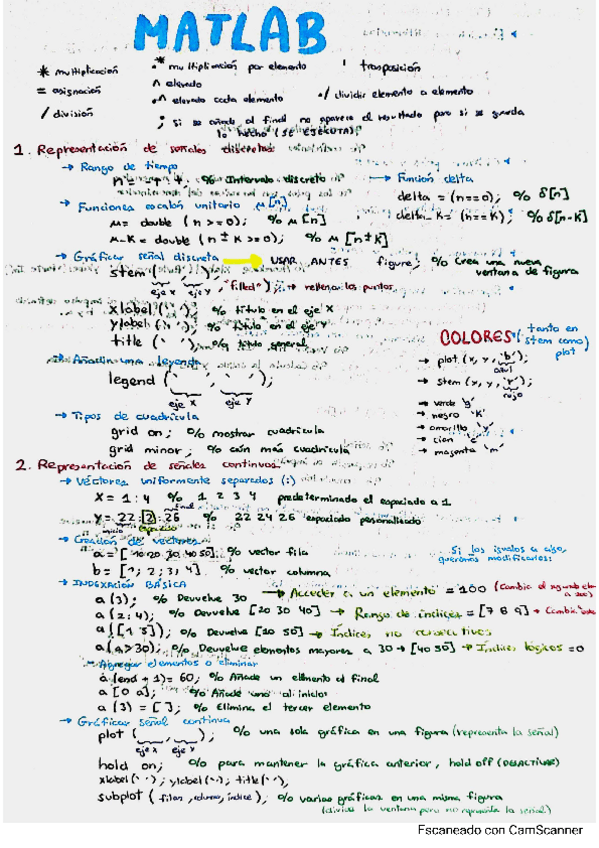 MATLAB
* multiplicación
.* multiplicación por elemento
' trasposición
= asignación
^ elevado
.^ elevado cada elemento
./ dividir elemento a elemento
/ división
; si se añade al final no aparece el resultado pero si se guarda
lo hecho (SE EJECUTA)
1. Representación de señales discretas
→ Rango de tiempo
% Intervalo discreto
→ Función delta
delta = (n==0); % δ[n]
→ Funciones escalón unitario μ[n]
delta_K = (n==K); % δ[n-K]
μ= double (n >=0); % μ[n]
μ-K = double (n ± K >=0); % μ[n±K]
→ Gráficar señal discreta → USAR ANTES figure; % Crea una nueva
ventana de figura
stem ( , , "filled"); → rellenar los puntos
eje x eje y
xlabel (' '); % título en el eje x
ylabel (' '); % título en el eje y
title (' '); % título general
COLORES (tanto en
stem como
plot)
→ plot (x, y, 'b');
azul
→ Añadir una leyenda
→ stem (x, y, 'r');
rojo
legend (' ', ' ');
eje x eje y
→ verde 'g'
→ negro 'K'
→ amarillo 'y'
→ cian 'c'
→ magenta 'm'
→ Tipos de cuadrícula
grid on; % mostrar cuadrícula
grid minor; % aún más cuadrícula
2. Representación de señales continuas
→ Véctores uniformemente separados (:)
X = 1:4 % 1 2 3 4 predeterminado el espaciado a 1
final
y = 22:2:26 % 22 24 26 espaciado personalizado
inicio espaciado
→ Creación de vectores
a = [10 20 30 40 50]; % vector fila
Si los igualas a algo,
queremos modificarlos:
b = [1; 2; 3; 4] % vector columna
→ INDEXACIÓN BÁSICA
a (3); % Devuelve 30 → Acceder a un elemento = 100 (Cambia el segundo
a (2:4); % Devuelve [20 30 40] → Rango de índices = [7 8 9] → Cambia
a ([1 5]); % Devuelve [10 50] → Índices no consecutivos
a (a>30); % Devuelve elementos mayores a 30 → [40 50] → Índices lógicos =0
→ Agregar elementos o eliminar
a (end + 1)= 60; % Añade un elemento al final
a [0 a]; % Añade uno al inicio
a (3) = [ ]; % Elimina el tercer elemento
→ Gráficar señal continua
plot ( , ); % una sola gráfica en una figura (representa la señal)
eje x eje y
hold on; % para mantener la gráfica anterior, hold off (DESACTIVAR)
xlabel(' '); ylabel(' '); title(' ');
subplot (filas, columna, índice); % varias gráficas en una misma figura
(divide la ventana pero no representa la señal)
Escaneado con CamScanner